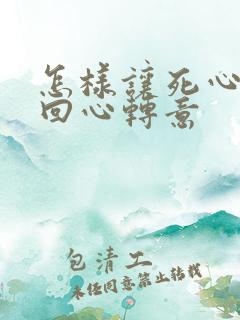 怎樣讓死心
回心轉意
包清工
未经同意禁止转载